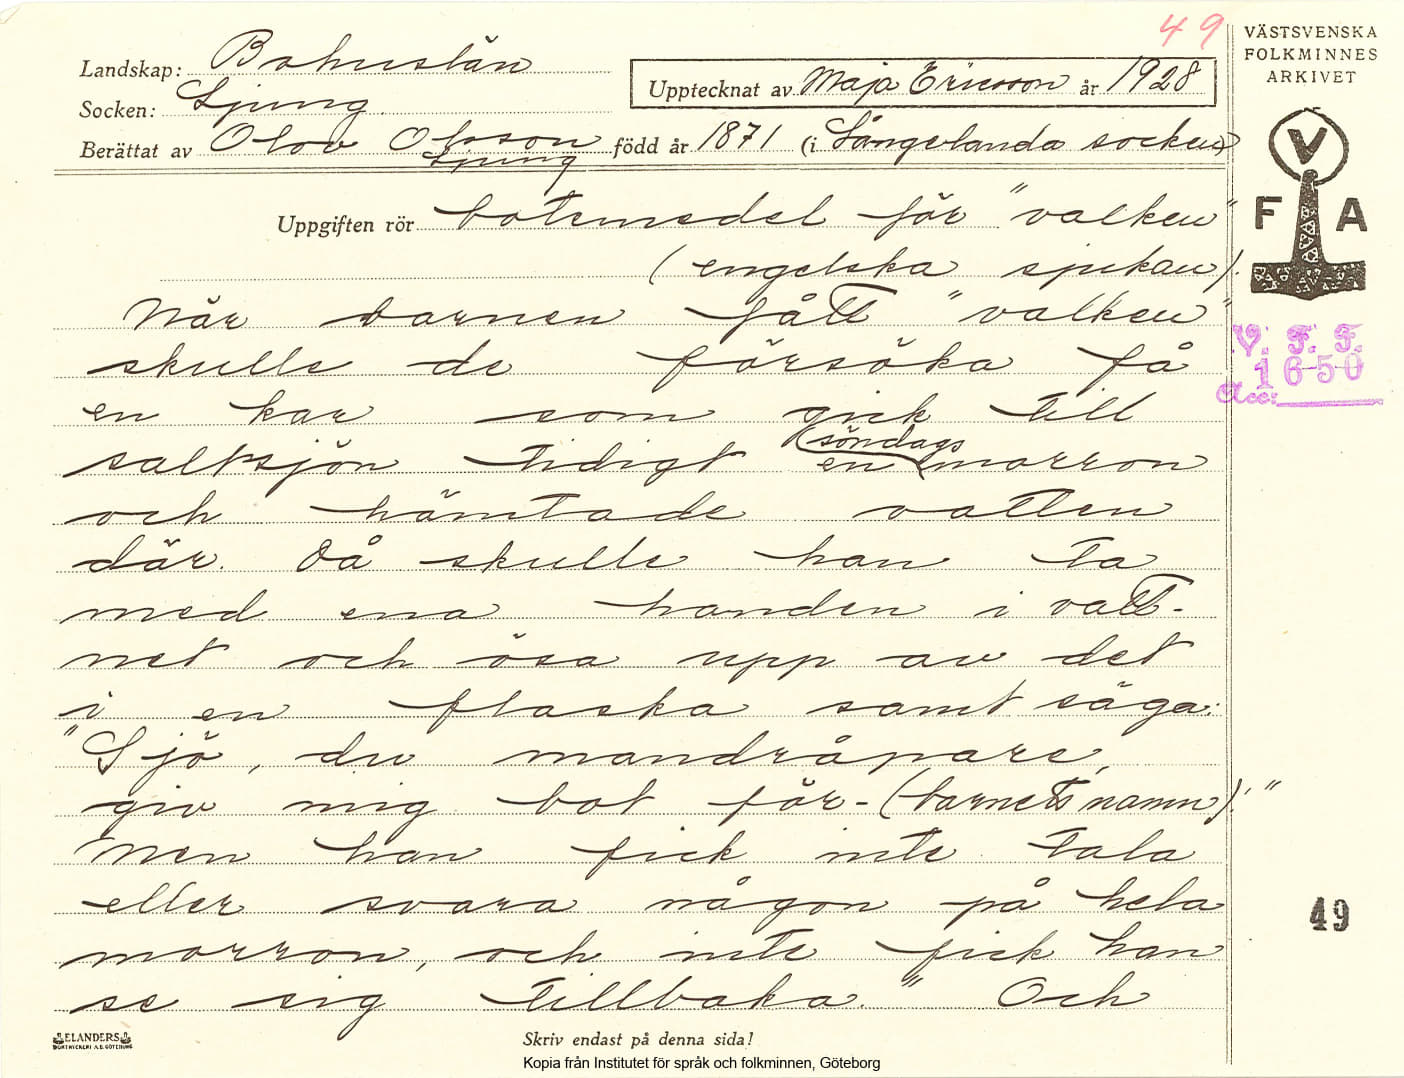 49
VÄSTSVENSKA
FOLKMINNES
ARKIVET
Landskap: Bohuslän
Upptecknat av Maja Ericsson år 1928
Socken: Ljung
Berättat av Olov Olsson född år 1871 (i Långelanda socken)
Ljung
V
F A
Uppgiften rör botemedel för "valken"
(engelska sjukan).
När barnen fått "valken"
skulle de försöka få
en kar som gick till
saltsjön tidigt en söndagsmorron
och hämtade vatten
där. Då skulle han ta
med ena handen i vatt-
net och ösa upp av det
i en flaska samt säga:
"Sjö, du mandråpare,
giv mig bot för - (barnets namn)!"
Men han fick inte tala
eller svara någon på hela
morron, och inte fick han
se sig tillbaka." Och
V. F. F.
1650
Acc:
49
ELANDERS
BOKTRYCKERI A.B. GÖTEBORG
Skriv endast på denna sida!
Kopia från Institutet för språk och folkminnen, Göteborg